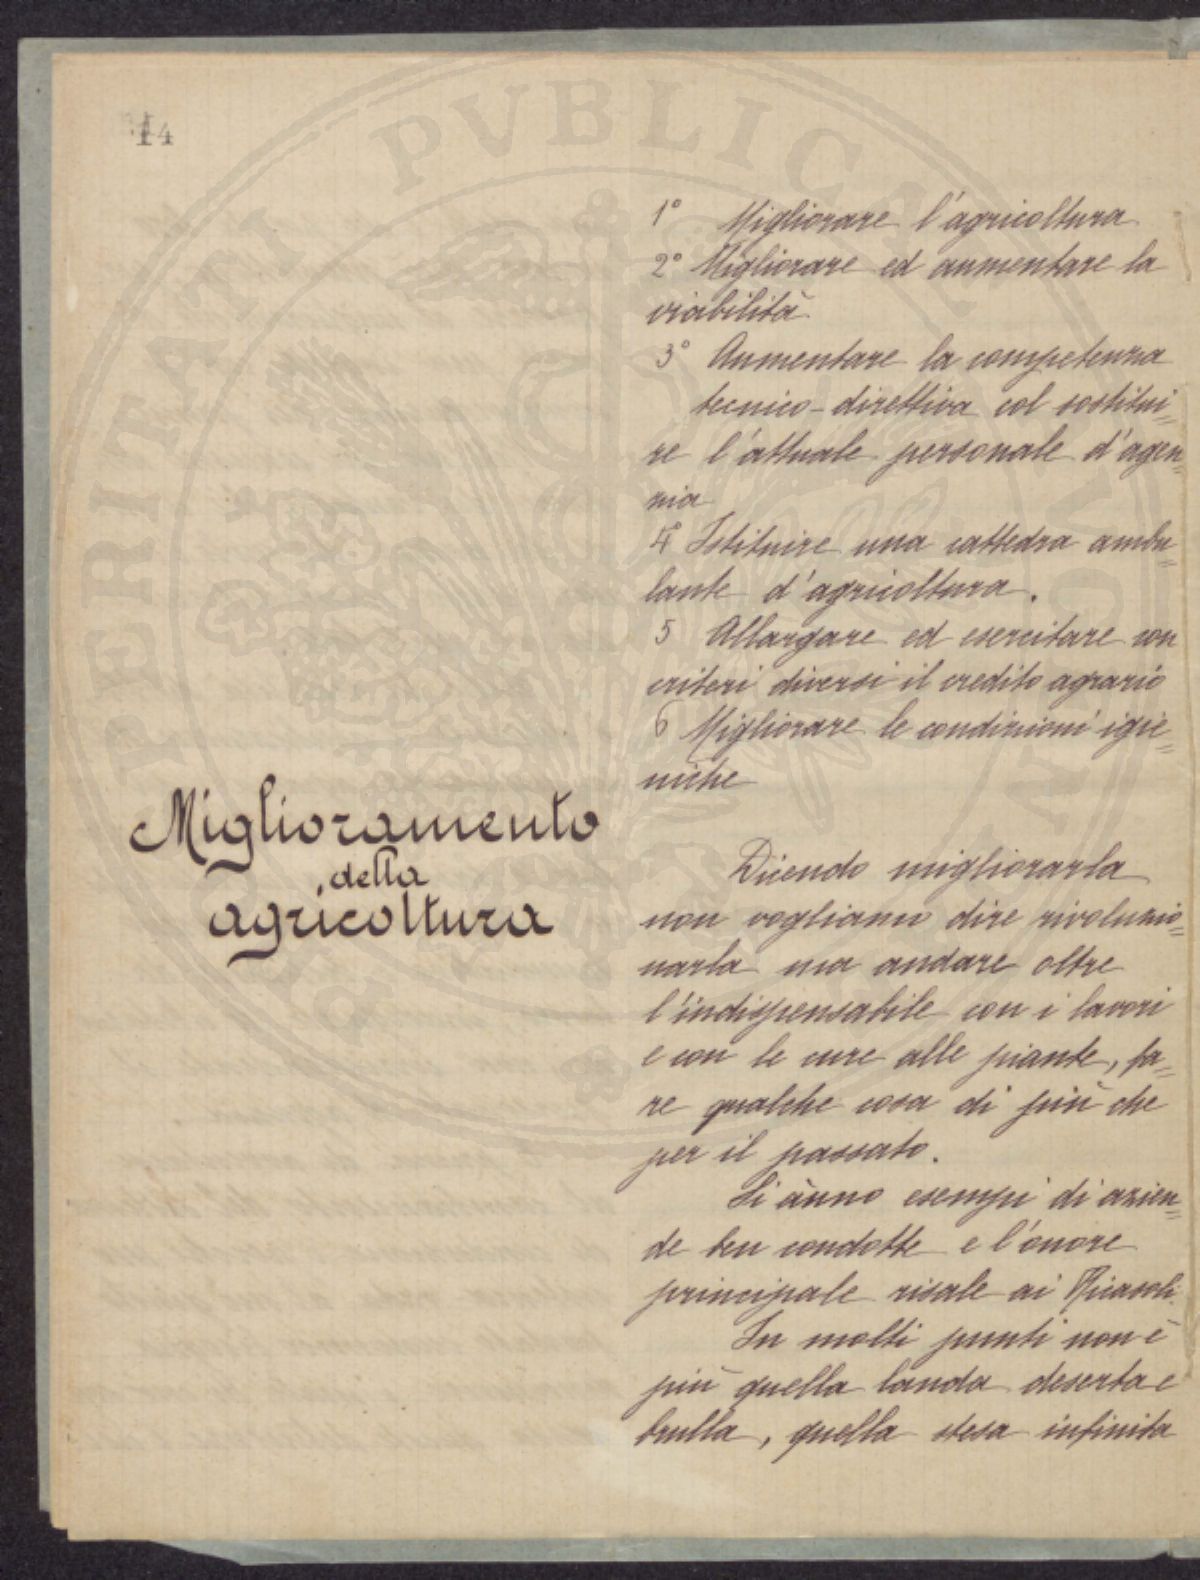 14
1° Migliorare l'agricoltura
2° Migliorare ed aumentare la
viabilità.
3° Aumentare la competenza
tecnico-direttiva col sostitui=
re l'attuale personale d'agen=
zia
4° Istituire una cattedra ambu=
lante d'agricoltura.
5 Allargare ed esercitare con
criteri diversi il credito agrario
6 Migliorare le condizioni igie=
niche
Miglioramento
della
agricoltura
Dicendo migliorarla
non vogliamo dire rivoluzio=
narla ma andare oltre
l'indispensabile con i lavori
e con le cure alle piante, fa=
re qualche cosa di più che
per il passato.
Si ànno esempi di azien=
de ben condotte e l'onore
principale risale ai Ricasoli.
In molti punti non è
più quella landa deserta e
brulla, quella stesa infinita
PERITATI PVBLICAE